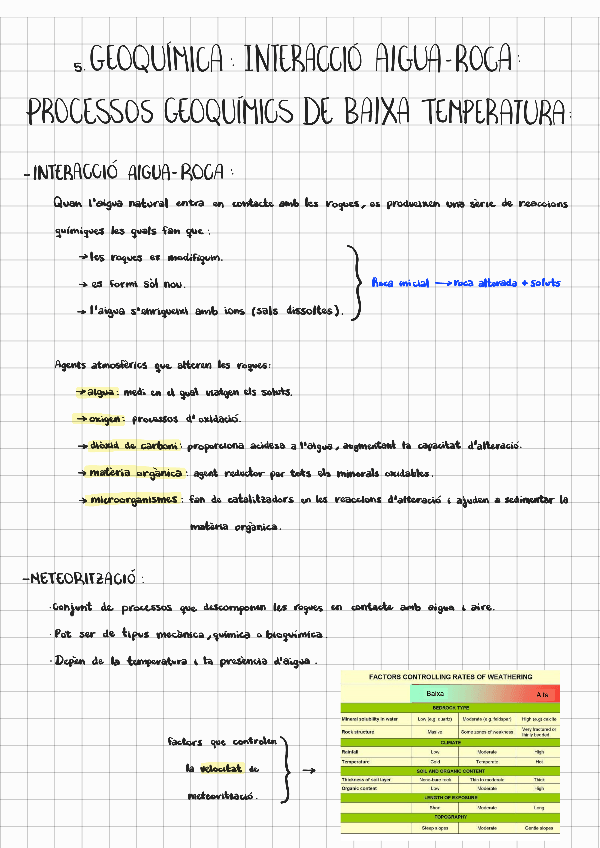 5. GEOQUÍMICA: INTERACCIÓ AIGUA-ROCA:
PROCESSOS GEOQUÍMICS DE BAIXA TEMPERATURA:
-INTERACCIÓ AIGUA-ROCA:
Quan l'aigua natural entra en contacte amb les roques, es produeixen una sèrie de reaccions
químiques les quals fan que:
→ les roques es modifiquin.
→ es formi sòl nou.
→ l'aigua s'enriqueixi amb ions (sals dissoltes).
Roca inicial → roca alterada + soluts
Agents atmosfèrics que alteren les roques:
→ aigua: medi en el qual viatgen els soluts.
→ oxigen: processos d'oxidació.
→ diòxid de carboni: proporciona acidesa a l'aigua, augmentant la capacitat d'alteració.
→ matèria orgànica: agent reductor per tots els minerals oxidables.
→ microorganismes: fan de catalitzadors en les reaccions d'alteració i ajuden a sedimentar la
matèria orgànica.
-METEORITZACIÓ:
·Conjunt de processos que descomponen les roques en contacte amb aigua i aire.
·Pot ser de tipus mecànica, química o bioquímica.
·Depèn de la temperatura i la presència d'aigua.
factors que controlen
la velocitat de
meteorització.
→
FACTORS CONTROLLING RATES OF WEATHERING
Baixa Alta
BEDROCK TYPE
Mineral solubility in water Low (e.g. quartz) Moderate (e.g. feldspar) High (e.g.) calcite
Rock structure Masive Some zones of weakness Very fractured or thinly bonded
CLIMATE
Rainfall Low Moderate High
Temperature Cold Temperate Hot
SOIL AND ORGANIC CONTENT
Thickness of soil layer None-bare rock Thin to moderate Thick
Organic content Low Moderate High
LENGTH OF EXPOSURE
Short Moderate Long
TOPOGRAPHY
Steep slopes Moderate Gentle slopes